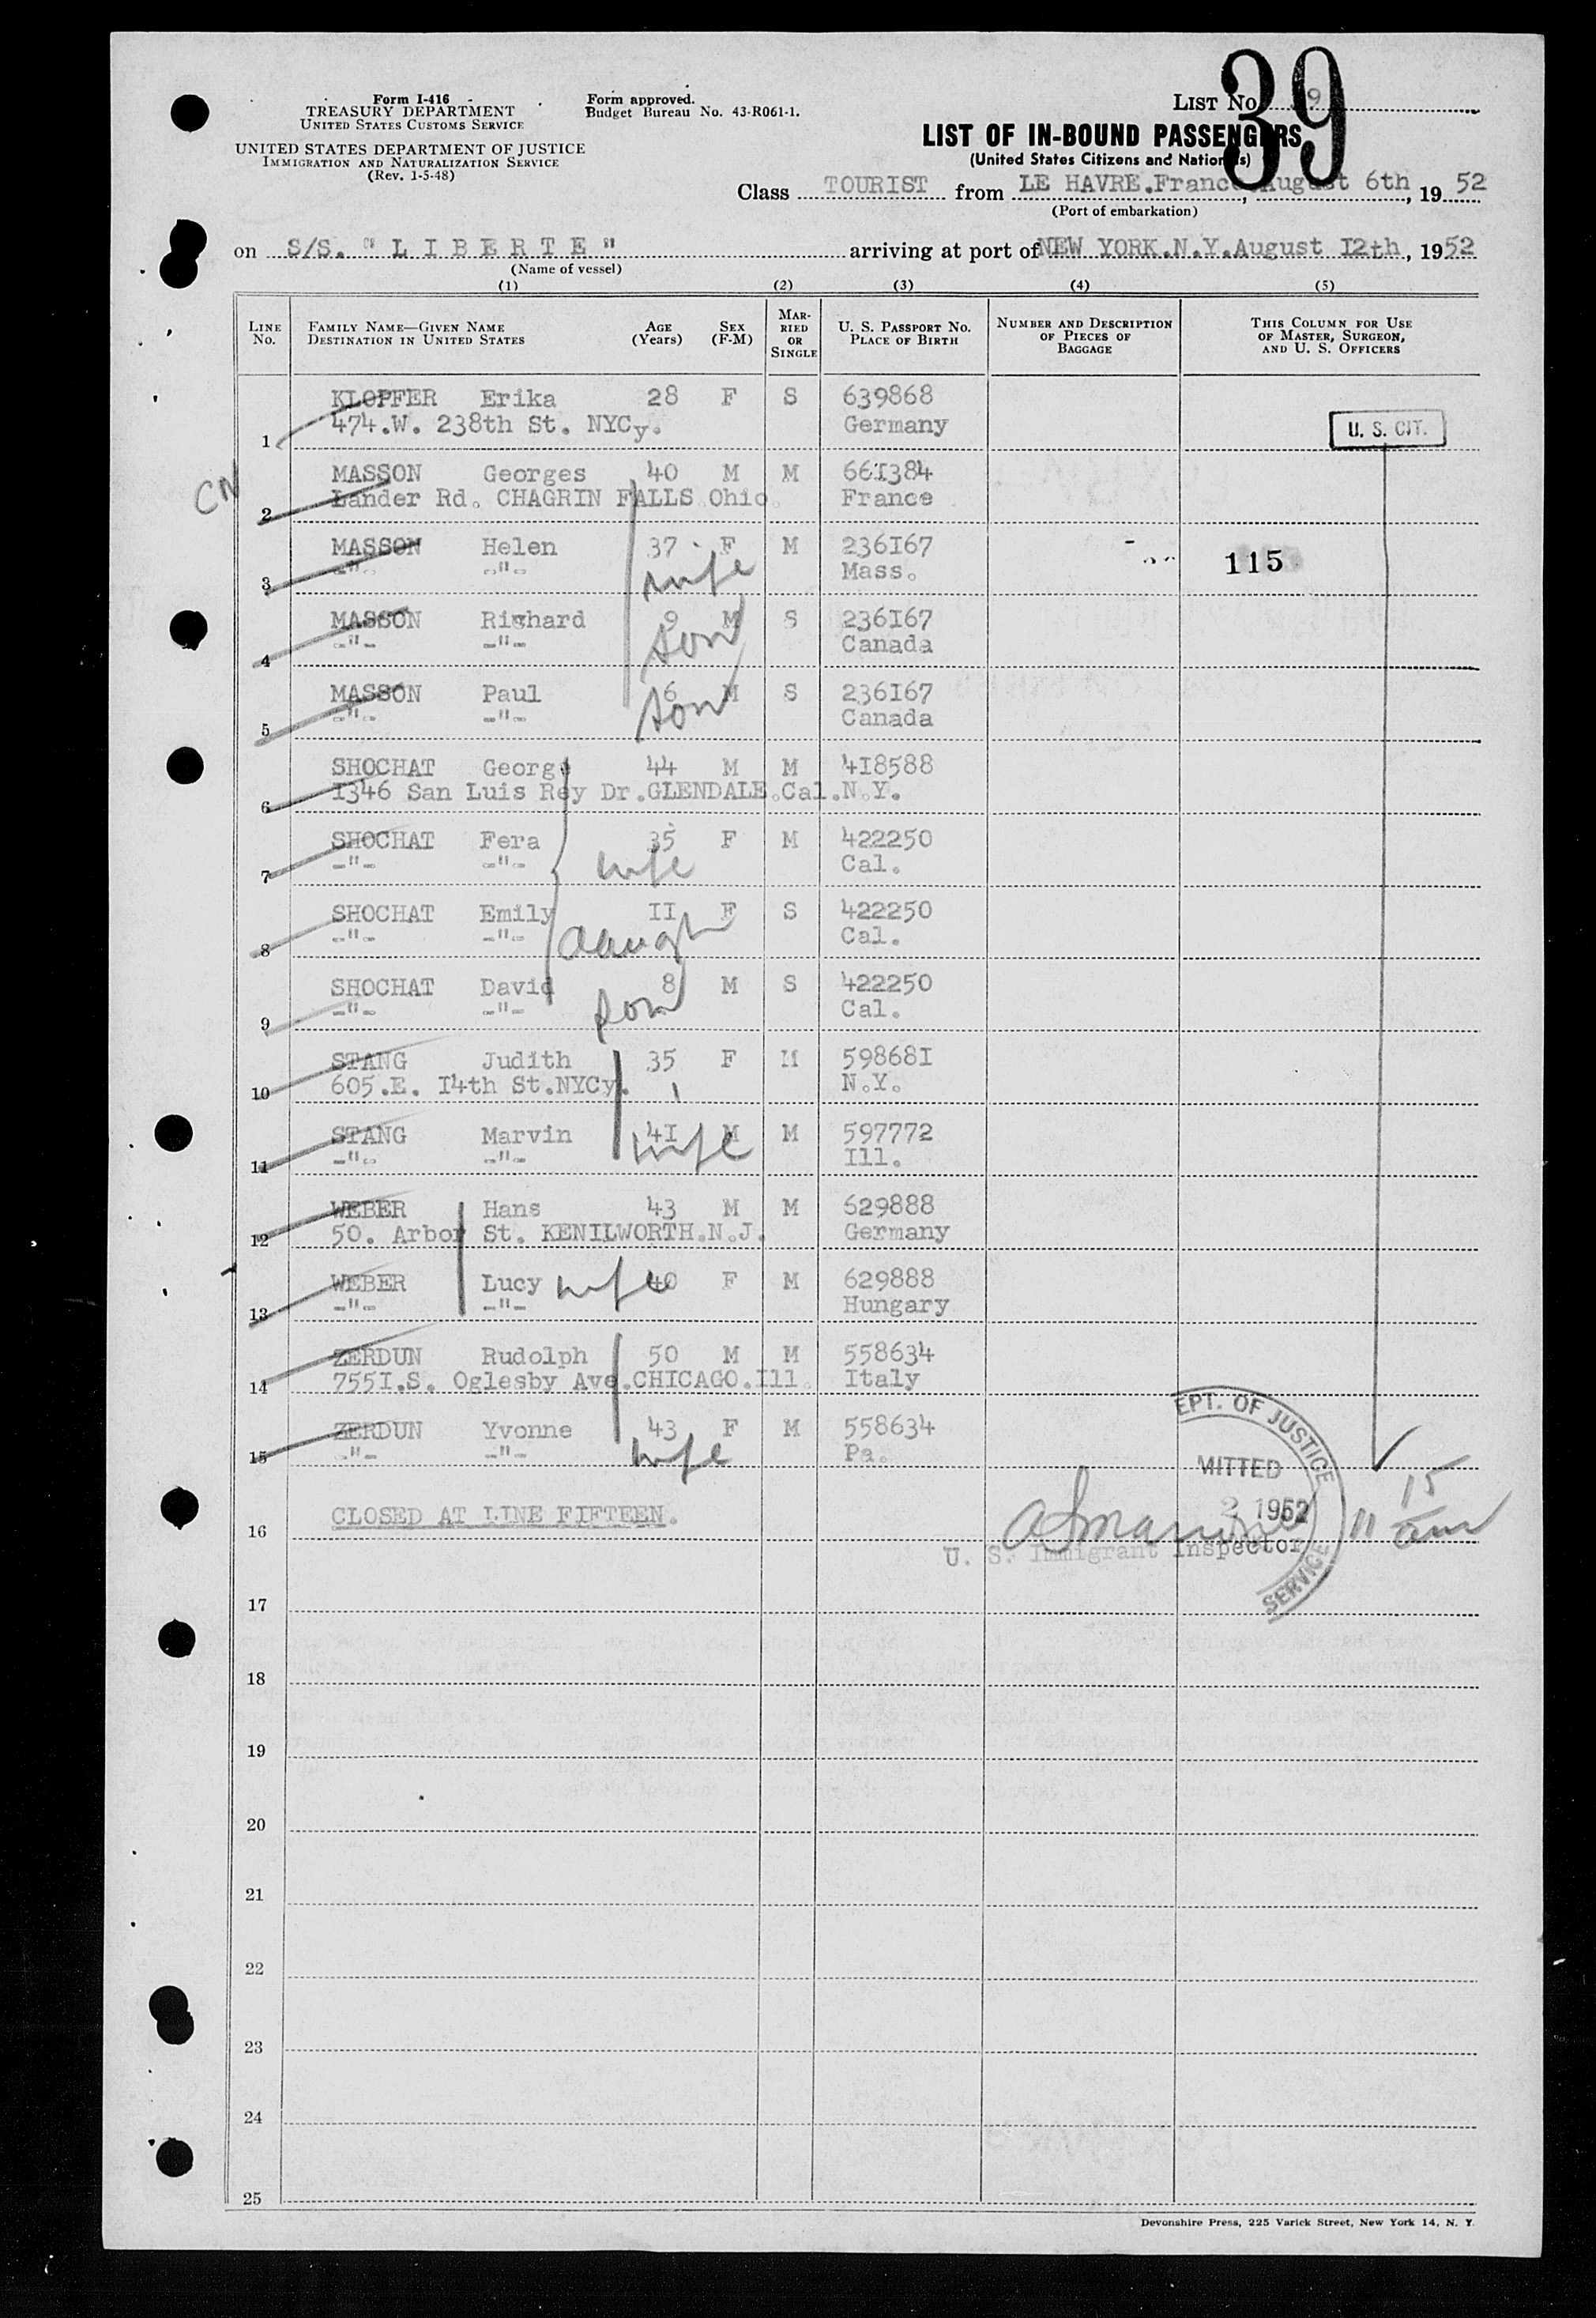 39
Form I-416
TREASURY DEPARTMENT
UNITED STATES CUSTOMS SERVICE
UNITED STATES DEPARTMENT OF JUSTICE
IMMIGRATION AND NATURALIZATION SERVICE
(Rev. 1-5-48)
Form approved.
Budget Bureau No. 43-R061-1.
LIST No. 9
LIST OF IN-BOUND PASSENGERS
(United States Citizens and Nationals)
Class TOURIST from LE HAVRE.France, August 6th, 1952
(Port of embarkation)
on S/S. "LIBERTE" arriving at port of NEW YORK.N.Y.August I2th, 1952
(Name of vessel)
(1) (2) (3) (4) (5)
LINE No. FAMILY NAME—GIVEN NAME DESTINATION IN UNITED STATES AGE (Years) SEX (F-M) MARRIED OR SINGLE U. S. PASSPORT No. PLACE OF BIRTH NUMBER AND DESCRIPTION OF PIECES OF BAGGAGE THIS COLUMN FOR USE OF MASTER, SURGEON, AND U. S. OFFICERS
KLOPFER Erika 28 F S 639868
1 474.W. 238th St. NYCy. Germany U. S. CIT.
CN
MASSON Georges 40 M M 66I384
2 Lander Rd. CHAGRIN FALLS Ohio. France
MASSON Helen 37 F M 236I67
3 -"- -"- wife Mass. 115
MASSON Righard 9 M S 236I67
4 -"- -"- son Canada
MASSON Paul 6 M S 236I67
5 -"- -"- son Canada
SHOCHAT George 44 M M 4I8588
6 I346 San Luis Rey Dr.GLENDALE.Cal.N.Y.
SHOCHAT Fera 35 F M 422250
7 -"- -"- wife Cal.
SHOCHAT Emily II F S 422250
8 -"- -"- daugh Cal.
SHOCHAT David 8 M S 422250
9 -"- -"- son Cal.
STANG Judith 35 F M 59868I
10 605.E. I4th St.NYCy. N.Y.
STANG Marvin 4I M M 597772
11 -"- -"- wife Ill.
WEBER Hans 43 M M 629888
12 50. Arbor St. KENILWORTH.N.J. Germany
WEBER Lucy wife 40 F M 629888
13 -"- -"- Hungary
ZERDUN Rudolph 50 M M 558634
14 755I.S. Oglesby Ave.CHICAGO.Ill. Italy
ZERDUN Yvonne 43 F M 558634
15 -"- -"- wife Pa.
EPT. OF JUSTICE
MITTED
2 1952
SERVICE
11 15 am
16 CLOSED AT LINE FIFTEEN.
U. S. Immigrant Inspector
17
18
19
20
21
22
23
24
25
Devonshire Press, 225 Varick Street, New York 14, N. Y.